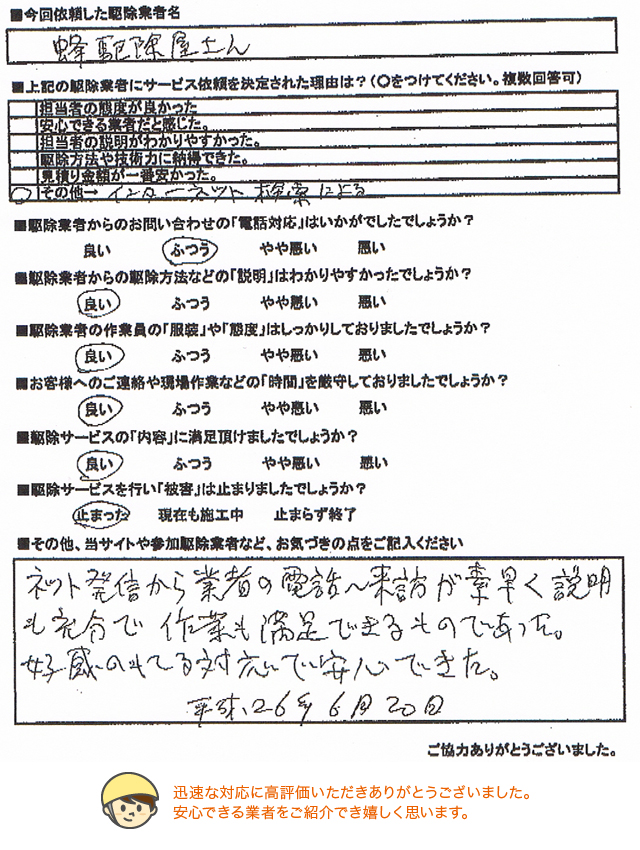 ■今回依頼した駆除業者名
蜂駆除屋さん
■上記の駆除業者にサービス依頼を決定された理由は？（〇をつけてください。複数回答可）
担当者の態度が良かった
安心できる業者だと感じた。
担当者の説明がわかりやすかった。
駆除方法や技術力に納得できた。
見積り金額が一番安かった。
○ その他→ インターネット検索による
■駆除業者からのお問い合わせの「電話対応」はいかがでしたでしょうか？
良い ふつう やや悪い 悪い
■駆除業者からの駆除方法などの「説明」はわかりやすかったでしょうか？
良い ふつう やや悪い 悪い
■駆除業者の作業員の「服装」や「態度」はしっかりしておりましたでしょうか？
良い ふつう やや悪い 悪い
■お客様へのご連絡や現場作業などの「時間」を厳守しておりましたでしょうか？
良い ふつう やや悪い 悪い
■駆除サービスの「内容」に満足頂けましたでしょうか？
良い ふつう やや悪い 悪い
■駆除サービスを行い「被害」は止まりましたでしょうか？
止まった 現在も施工中 止まらず終了
■その他、当サイトや参加駆除業者など、お気づきの点をご記入ください
ネット発信から業者の電話～来訪が素早く説明
も充分で作業も満足できるものであった。
好感のもてる対応で安心できた。
平成26年6月20日
ご協力ありがとうございました。
迅速な対応に高評価いただきありがとうございました。
安心できる業者をご紹介でき嬉しく思います。